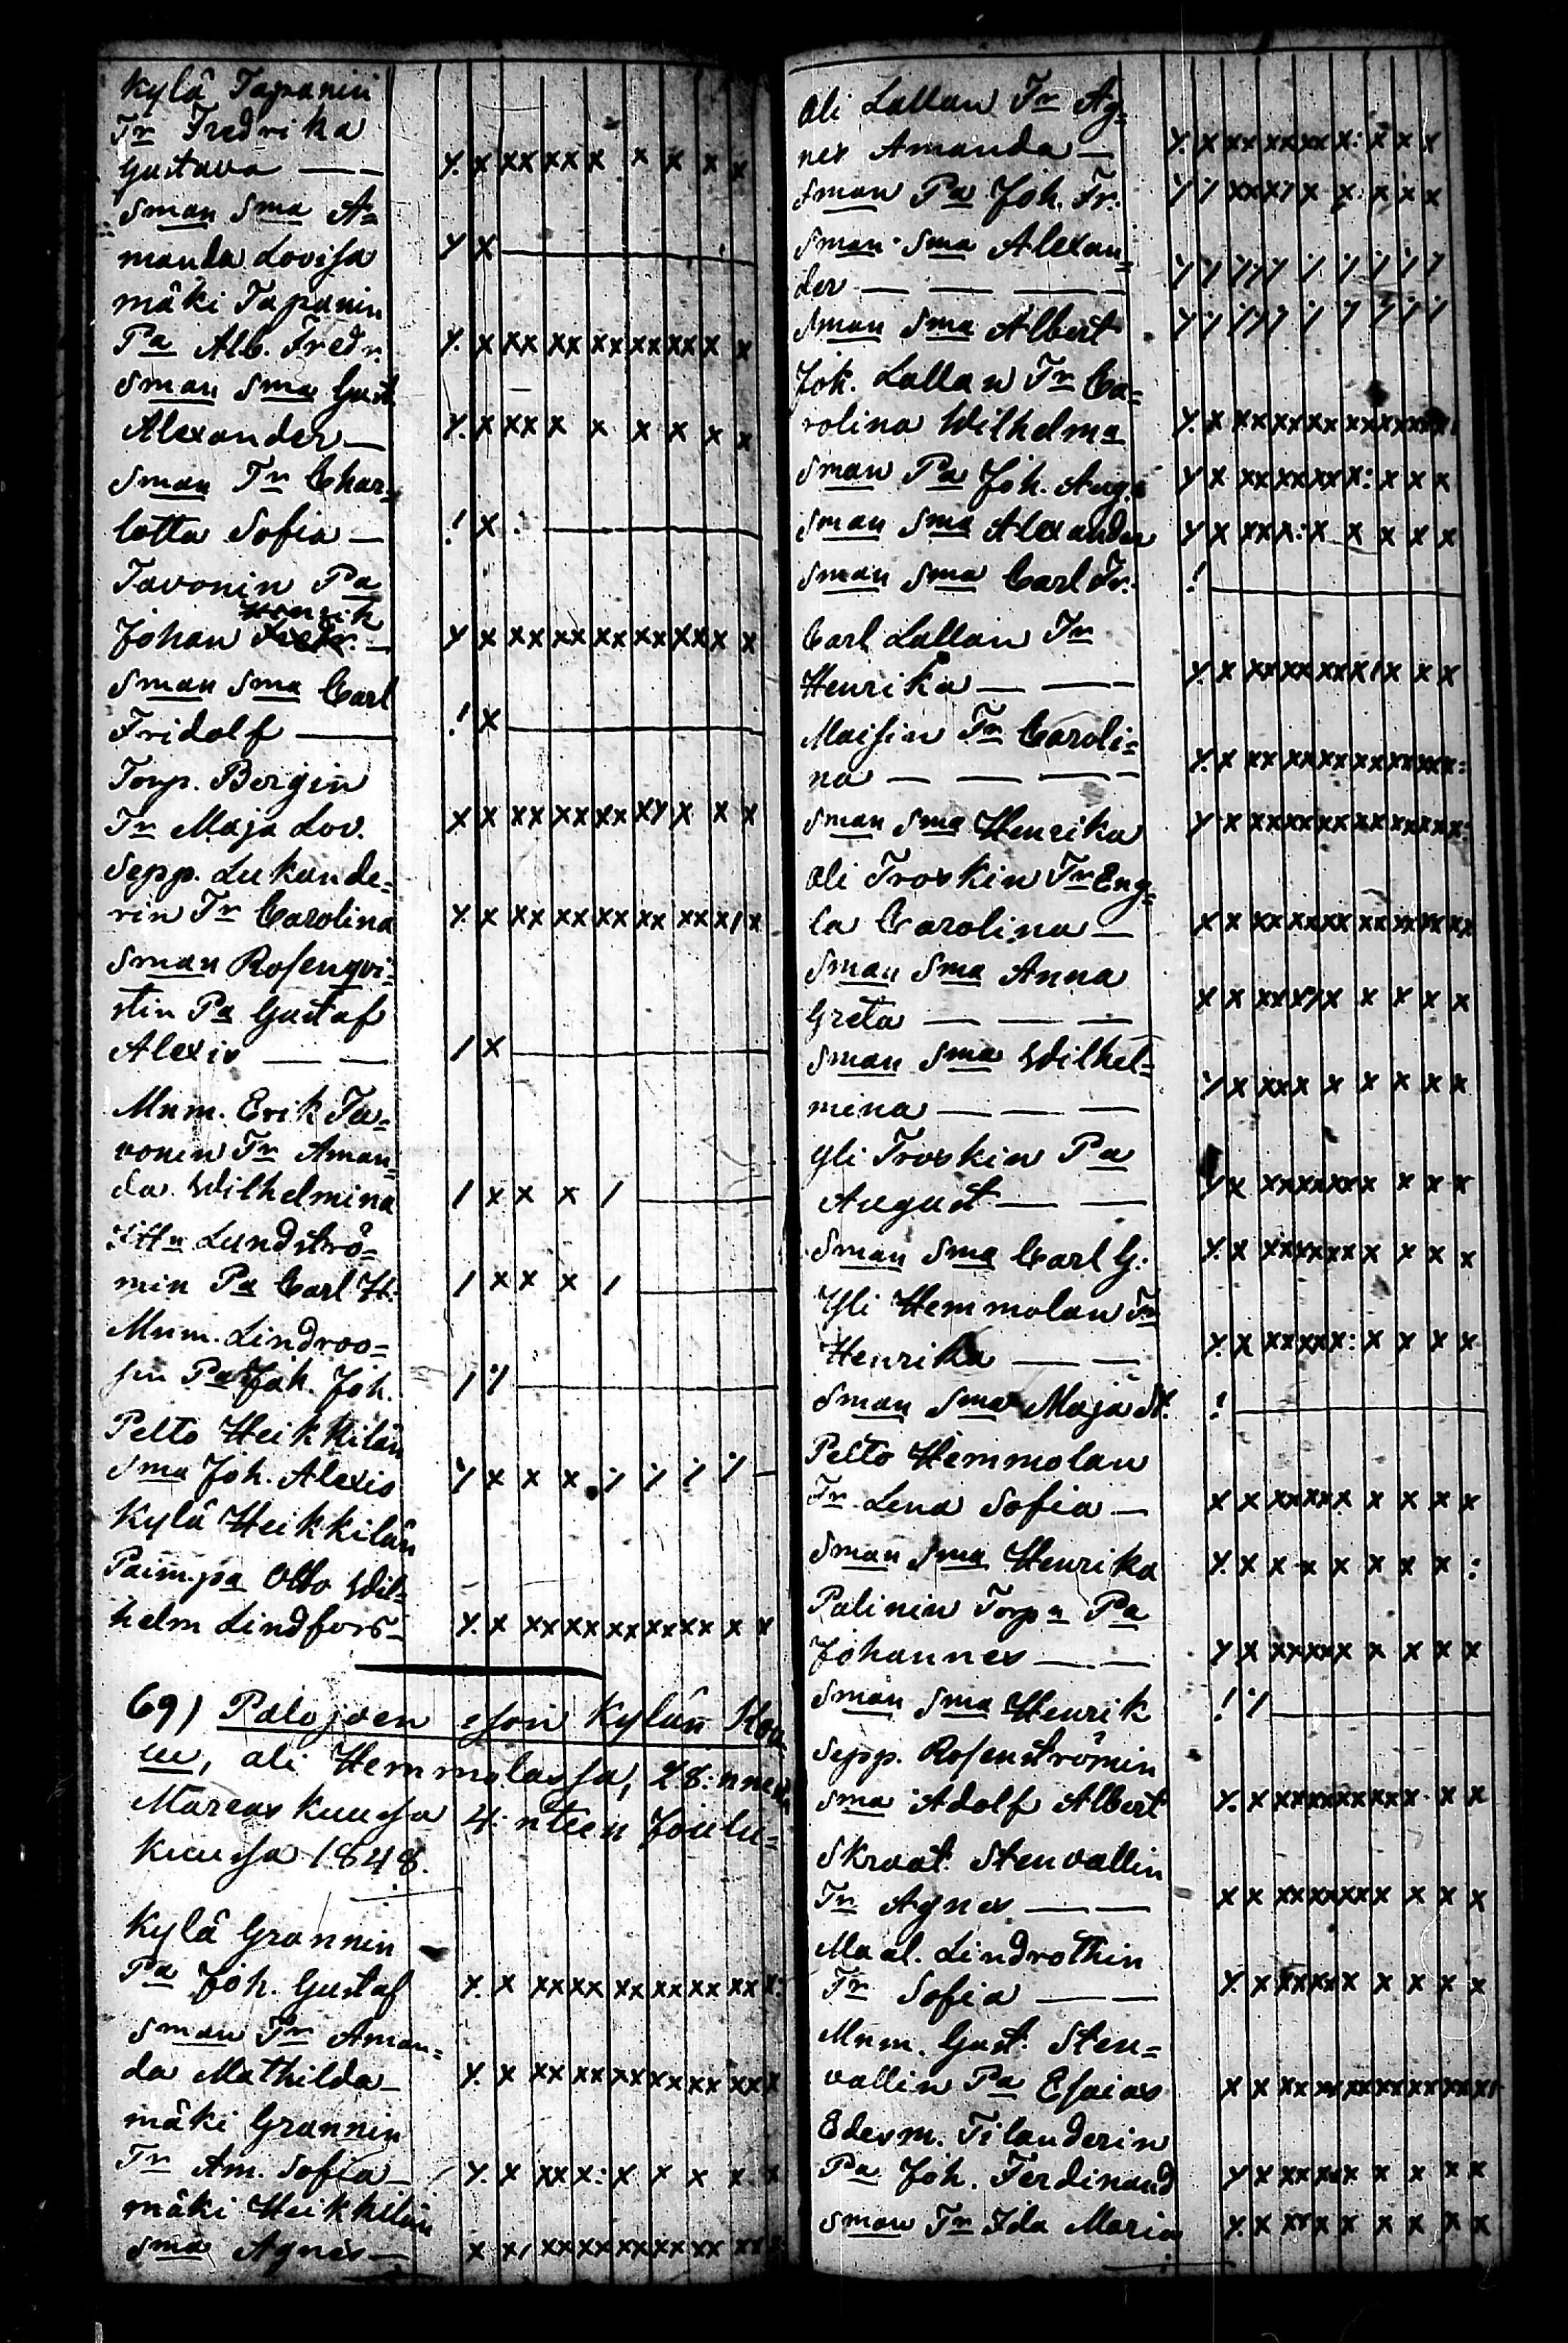 Kylä Tapanin
Tr Fredrika
Gustava — —
Sman Sma A=
manda Lovisa
mäki Tapanin
Pa Alb. Fredr.
Sman Sma Gust
Alexander —
Sman Tr Char=
lotta Sofia —
Tavonin Pa
Henrik
Johan Fredr. —
Sman Sma Carl
Fridolf —
Torp. Bergin
Tr Maja Lov.
Sepp. Lukande=
rin Tr Carolina
Sman Rosenqvi=
stin Pa Gustaf
Alexis — —
Mnm. Erik Ta=
vonen Tr Aman=
da Wilhelmina
Lundströ=
min Pa Carl H:
Mnm. Lindroo=
sin Pa Joh. Joh.
Pelto Heikkilän
Sma Joh. Alexis
Kylä Heikkilän
Paim.pa Otto Wil=
helm Lindfors —
69) Palojoen ison Kylän
ali Hemmolassa, 28:nnen
Marraskuussa 4:nteen Joulu=
kuussa 1848.
Kylä Grannin
Pa Joh. Gustaf
Sman Tr Aman=
da Mathilda —
mäki Grannin
Tr Am. Sofia —
mäki Heikkilän
Sma Agnes —
Ali Lallan Tr Ag=
nes Amanda —
Sman Pa Joh. Fr.
Sman Sma Alexan=
der — — —
Sman Sma Albert
Joh. Lallan Tr Ca=
rolina Wilhelma
Sman Pa Joh. Aug.
Sman Sma Alexander
Sman Sma Carl Fr.
Carl Lallan Tr
Henrika — —
Maisin Tr Caroli=
na — — —
Sman Sma Henrika
Ali Troskin Tr Eng=
la Carolina —
Sman Sma Anna
Greta — — —
Sman Sma Wilhel=
mina — — —
Yli Troskin Pa
August — —
Sman Sma Carl G:
Yli Hemmolan Tr
Henrika — —
Sman Sma Maja St.
Pelto Hemmolan
Tr Lena Sofia —
Sman Sma Henrika
Palinin Torpn Pa
Johannes — —
Sman Sma Henrik
Sepp. Rosenströmin
Sma Adolf Albert
Skraat. Stenvallin
Tr Agnes — —
Maal. Lindrothin
Tr Sofia — —
Mnm. Gust. Sten=
vallin Pa Esaias
Edesm. Tilanderin
Pa Joh. Ferdinand
Sman Tr Ida Maria